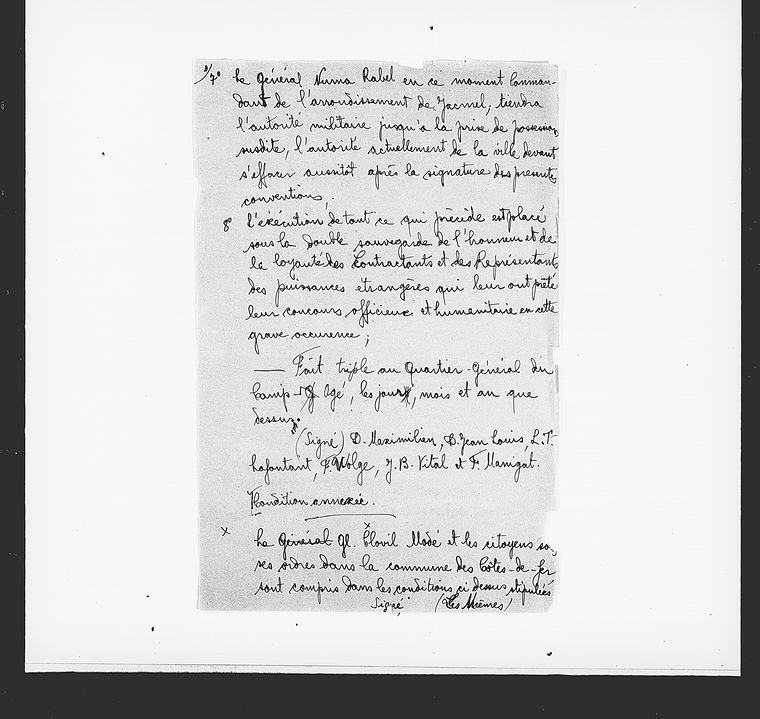 7° Le général Numa Rabel en ce moment Comman-
dant de l'arrondissement de Jacmel, tiendra
l'autorité militaire jusqu'à la prise de possession
susdite, l'autorité actuellement de la ville devant
s'effacer aussitôt après la signature des presentes
conventions,.
8° L'exécution de tout ce qui précède est placé
sous la double sauvegarde de l'honneur et de
la loyauté des Contractants et des Représentants
des puissances étrangères qui leur ont prêté
leur concours officieux et humanitaire en cette
grave occurence ;
— Fait triple au Quartier-Général du
Camp- Ogé, les jour, mois et an que
dessus.
(Signé) D. Maximilien, D. Jean Louis, L. T.
Lafontant, F. Wolge, J. B. Vital et F. Manigat.
Condition annexée.
x Le Général Gl. Clovil Modé et les citoyens sous
ses ordres dans la commune des Côtes-de-fer
sont compris dans les conditions ci dessus stipulées
Signé (Les Mêmes)